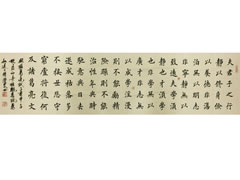 夫君子之行
靜以修身儉
以養德非澹
泊無以明志
非寧靜無以
致遠夫學須
靜也才須學
也非學無以
廣才非志無
以成學淫慢
則不能勵精
險躁則不能
治性年與時
馳意與日去
遂成枯落多
不接世悲守
窮廬將復何
及諸葛亮文